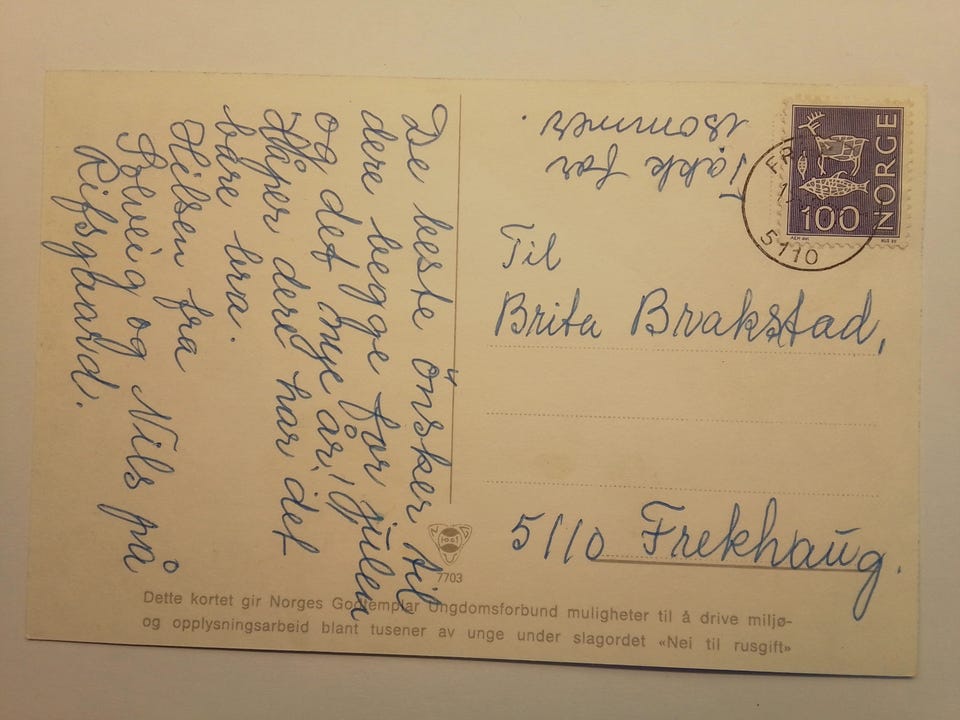 De beste önsker til
dere begge for julen
og det nye år!
Håper dere har det
bare bra.
Hilsen fra
Solveig og Nils på
Rifsgaard.
Takk for
sommer.
NORGE
100
FR
5110
Til
Brita Brakstad,
5110 Frekhaug.
7703
Dette kortet gir Norges Godtemplar Ungdomsforbund muligheter til å drive miljø-
og opplysningsarbeid blant tusener av unge under slagordet «Nei til rusgift»